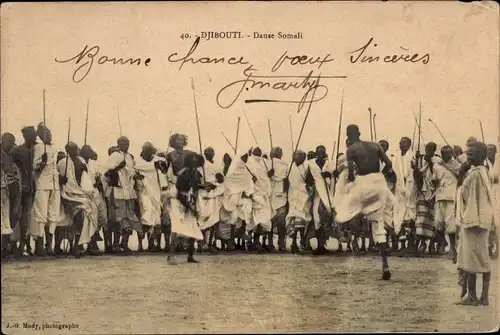 40. - DJIBOUTI. - Danse Somali
Bonne chance, vœux Sincères
J.-G. Mody, photographe